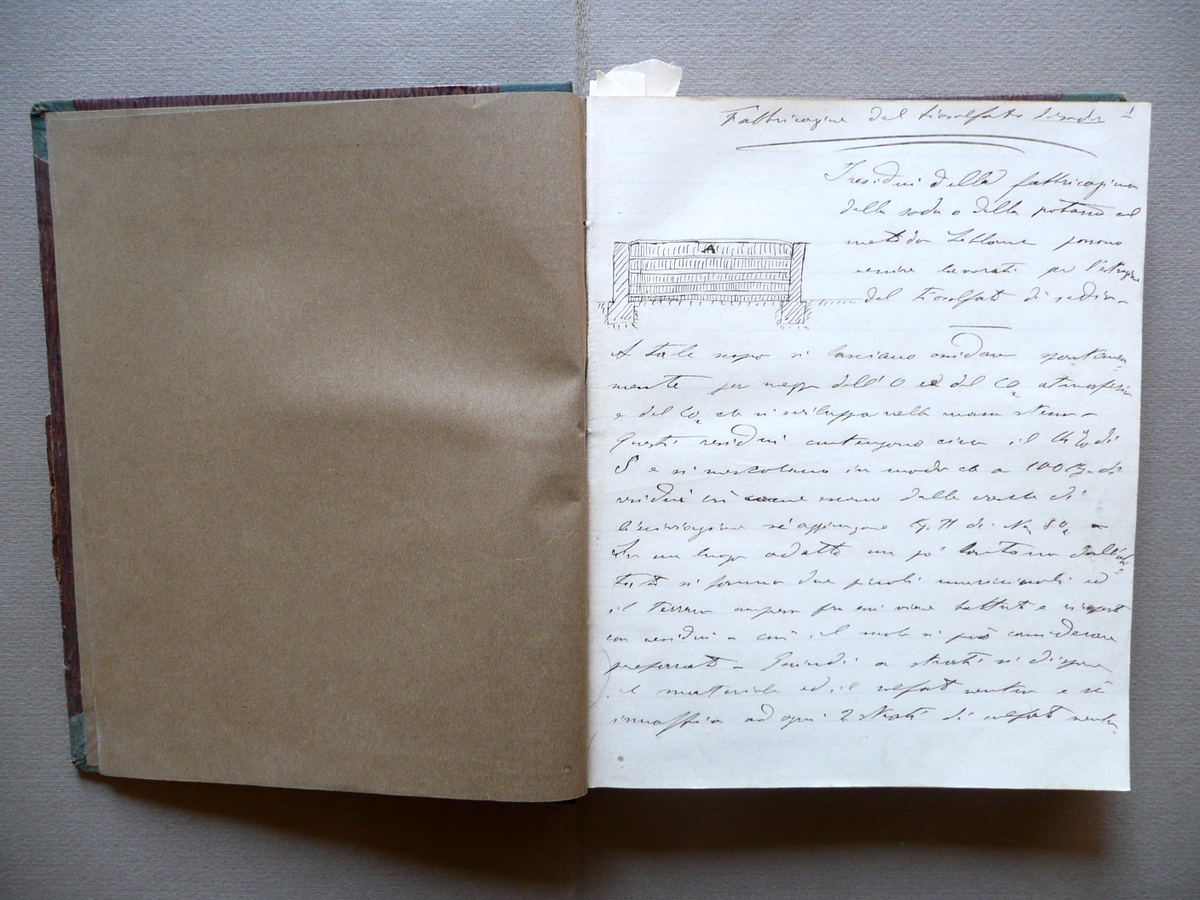 Fabbricazione del tiosolfato di sodio 1
I residui della fabbricazione
della soda o della potassa col
metodo Leblanc possono
venire lavorati per l'estrazione
del tiosolfato di sodio –
A
A tale scopo si lasciano ossidare spontanea-
mente per mezzo dell'O ed del CO2 atmosferico
e del CO2 che si sviluppa nella massa stessa –
Questi residui contengono circa il di
S e si mescolano in modo che a 100 di
residui così come escono dalle vasche di
si aggiungono di Na SO4 –
In un luogo adatto un po' lontano dall'abi-
tato si fanno due piccoli muricciuoli ed
il terreno compreso fra essi viene battuto e
con residui – così il suolo si può considerare
preparato – Quindi a strati si dispone
il materiale ed il solfato neutro e si
innaffia ad ogni 2 strati di solfato neutro